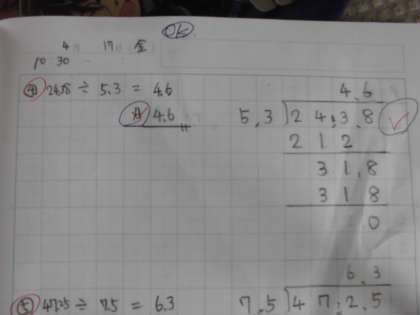 OK
4 17 金
10 30
④ 24.38 ÷ 5.3 = 4.6
A 4.6
4.6
5.3 24.3.8
212
31.8
318
0
⑤ 47.25 ÷ 7.5 = 6.3
6.3
7.5 47.2.5